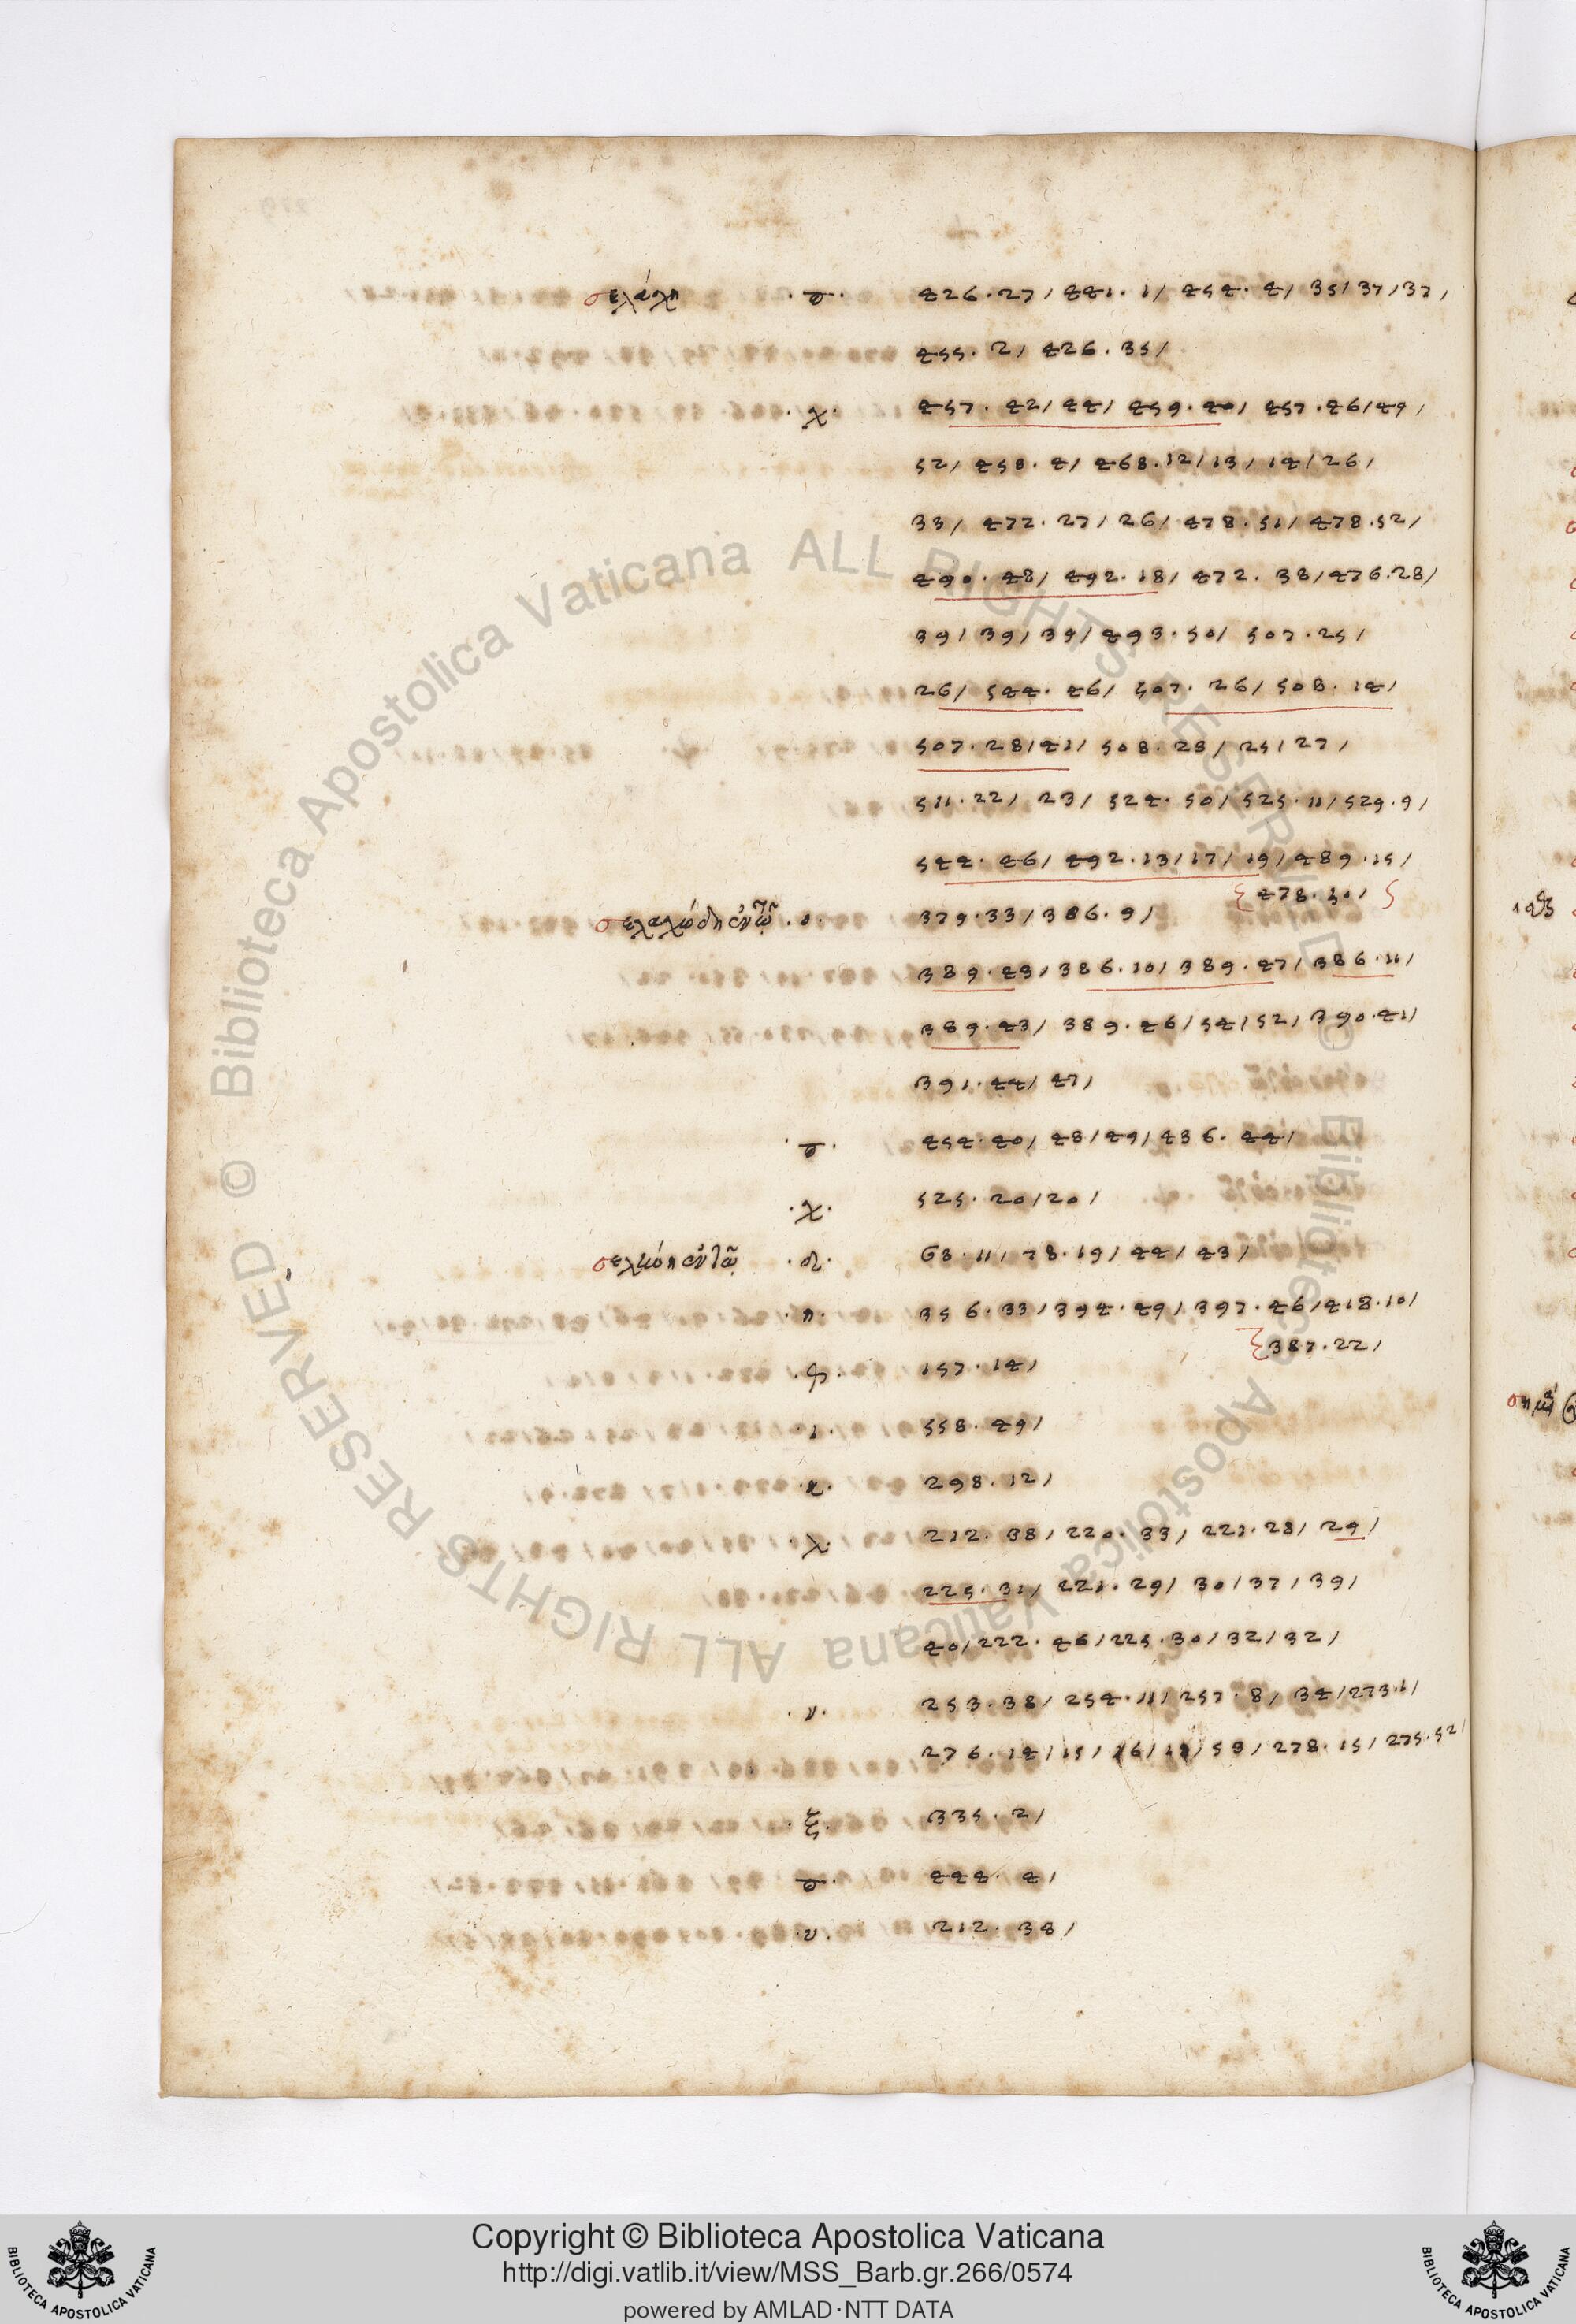 σελάχη ·σ· 426·27/ 441·1/ 454·4/ 35/ 37/ 37/
455·2/ 426·35/
·χ· 457·42/ 44/ 459·40/ 457·46/ 49/
52/ 458·4/ 468·12/ 13/ 14/ 26/
33/ 472·27/ 26/ 478·51/ 478·52/
490·48/ 492·18/ 472·38/ 476·28/
39/ 39/ 39/ 493·50/ 507·25/
26/ 544·46/ 507·26/ 508·14/
507·28/ 41/ 508·23/ 25/ 27/
511·22/ 23/ 524·50/ 525·11/ 529·9/
544·46/ 492·13/ 17/ 19/ 489·15/
478·30/
σελαχώδη ·ο· 379·33/ 386·9/
389·43/ 386·10/ 389·47/ 386·11/
389·43/ 389·46/ 54/ 52/ 390·41/
391·44/ 47/
·σ· 454·40/ 48/ 49/ 436·44/
·χ· 525·20/ 20/
68·11/ 78·19/ 44/ 43/
·η· 356·33/ 394·49/ 397·46/ 418·10/
387·22/
157·14/
·ι· 558·49/
·κ· 298·12/
·λ· 212·38/ 220·33/ 221·28/ 29/
225·31/ 221·29/ 30/ 37/ 39/
40/ 222·46/ 225·30/ 32/ 32/
·ν· 253·38/ 254·11/ 257·8/ 34/ 273·1/
276·14/ 15/ 16/ 53/ 278·15/ 275·52/
·ξ· 335·2/
·σ· 444·4/
·υ· 212·38/
Copyright © Biblioteca Apostolica Vaticana
http://digi.vatlib.it/view/MSS_Barb.gr.266/0574
powered by AMLAD·NTT DATA